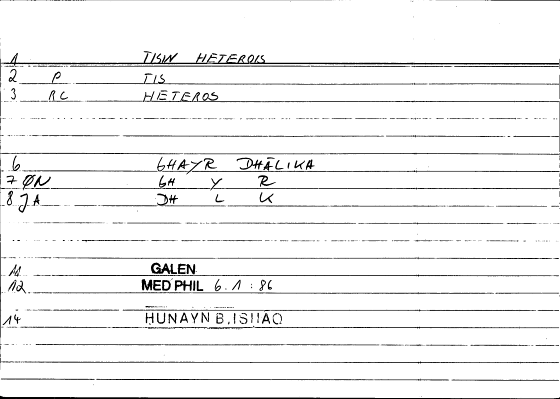 1 TISIN HETEROIS
2 P TIS
3 RC HETEROS
6 GHAYR DHĀLIKA
7 ØN GH Y R
8 JA DH L K
11 GALEN
12 MED PHIL 6.1:86
14 HUNAYN B.ISHAQ